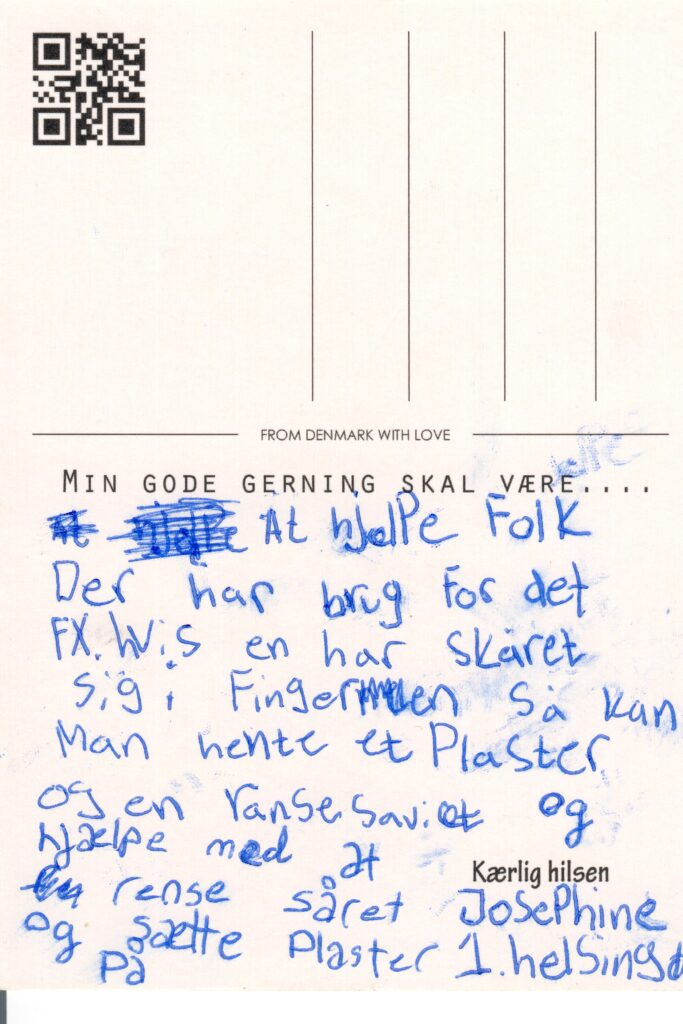 FROM DENMARK WITH LOVE
MIN GODE GERNING SKAL VÆRE....
At hjelpe At hjelPe Folk
Der har brug For det
FX. hvis en har skåret
sig i Fingeren så kan
Man hente et Plaster
og en ranse saviet og
hjælpe med at
rense såret
og sætte Plaster
På
Kærlig hilsen
JosePhine
1. helsingø